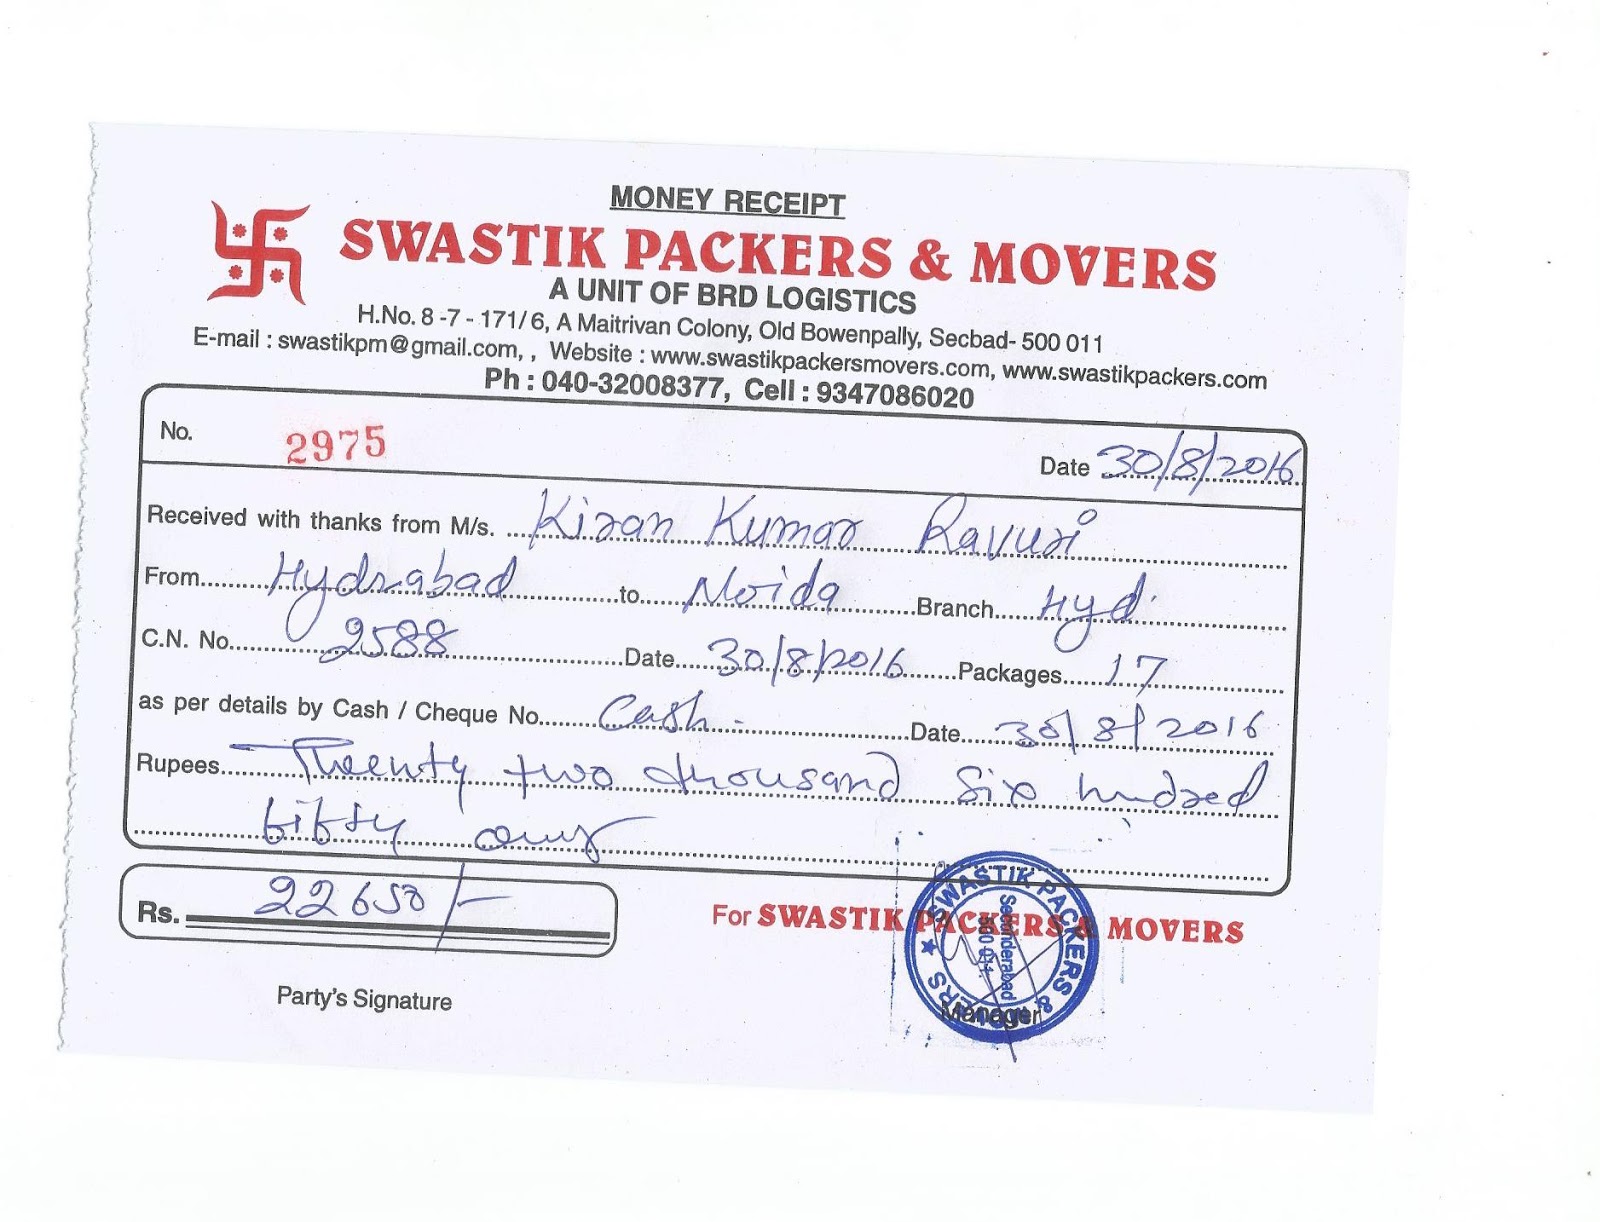 MONEY RECEIPT
SWASTIK PACKERS & MOVERS
A UNIT OF BRD LOGISTICS
H.No. 8 -7 - 171/ 6, A Maitrivan Colony, Old Bowenpally, Secbad- 500 011
E-mail : swastikpm@gmail.com, , Website : www.swastikpackersmovers.com, www.swastikpackers.com
Ph : 040-32008377, Cell : 9347086020
No. 2975 Date 30/8/2016
Received with thanks from M/s. Kiran Kumar Ravuri
From Hydrabad to Noida Branch Hyd.
C.N. No. 2588 Date 30/8/2016 Packages 17
as per details by Cash / Cheque No. Cash. Date 30/8/2016
Rupees Twenty two thousand Six hundred
fifty only
Rs. 22650/-
For SWASTIK PACKERS & MOVERS
SWASTIK PACKERS & MOVERS ★
Secunderabad
500 011.
Party's Signature
Manager